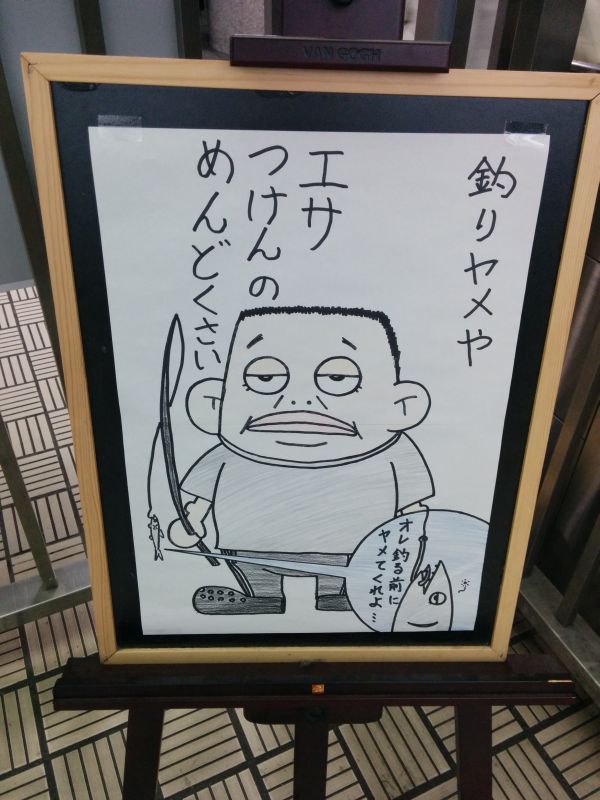 VAN GOGH
釣りヤメや
エサ
つけんの
めんどくさい
オレ釣る前に
ヤメてくれよ…